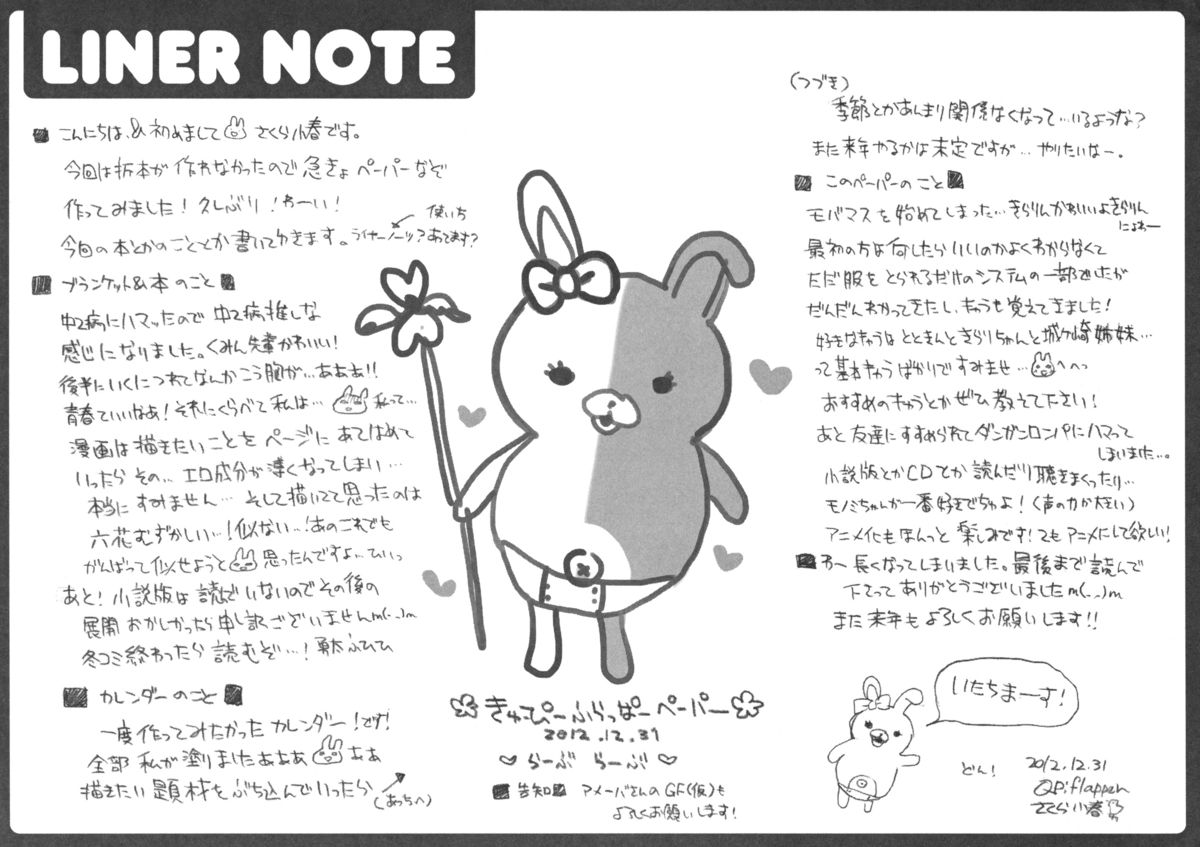 LINER NOTE
■ こんにちは、&初めまして さくら小春です。
今回は折本が作れなかったので急きょペーパーなぞ
作ってみました!久しぶり!わーい!
今回の本とかのこととか書いてゆきます。ライナーノーツ?あってます?
使いち
■ ブランケット&本のこと ■
中2病にハマったので中2病推しな
感じになりました。くみん先輩かわいい!
後半にいくにつれてなんかこう胸が…あああ!!
青春ていいなあ!それにくらべて私は… 私って…
漫画は描きたいことをページにあてはめて
いったらその…エロ成分が薄くなってしまい…
本当にすみません… そして描いてて思ったのは
六花むずかしい…!似ない…!あのこれでも
がんばって似せようと 思ったんですよ…ていっ
あと!小説版は読んでいないのでその後の
展開おかしかったら申し訳ございませんm(_ _)m
冬コミ終わったら読むぞ…!勇太ふひひ
■ カレンダーのこと ■
一度作ってみたかったカレンダー!です!
全部私が塗りましたあああ ああ
描きたい題材をぶち込んでいったら
(あっちへ)
きゅーぴーふらっぱーペーパー
2012.12.31
♡ らーぶ らーぶ ♡
■ 告知 ■ アメーバさんのGF(仮)も
よろしくお願いします!
(つづき)
季節とかあんまり関係なくなって…いるような?
また来年やるかは未定ですが…やりたいなー。
■ このペーパーのこと ■
モバマスを始めてしまった…きらりんかわいいよきらりん
にょわー
最初の方は何したらいいのかよくわからなくて
ただ服をとられるだけのシステムの一部でしたが
だんだんわかってきたし、きゃらも覚えてきました!
好きなきゃらはとときんときらりちゃんと城ヶ崎姉妹…
って基本きゃらばかりですみませ… へへっ
おすすめのきゃらとかぜひ教えて下さい!
あと友達にすすめられてダンガンロンパにハマって
しまいました…。
小説版とかCDとか読んだり聴きまくったり…
モノミちゃんが一番好きでちゅよ!(声の力が大きい)
アニメ化もほんっと楽しみです!2もアニメにして欲しい!
■ わー長くなってしまいました。最後まで読んで
下さってありがとうございましたm(_ _)m
また来年もよろしくお願いします!!
いたちまーす!
どん!
2012.12.31
QP:flapper
さくら小春